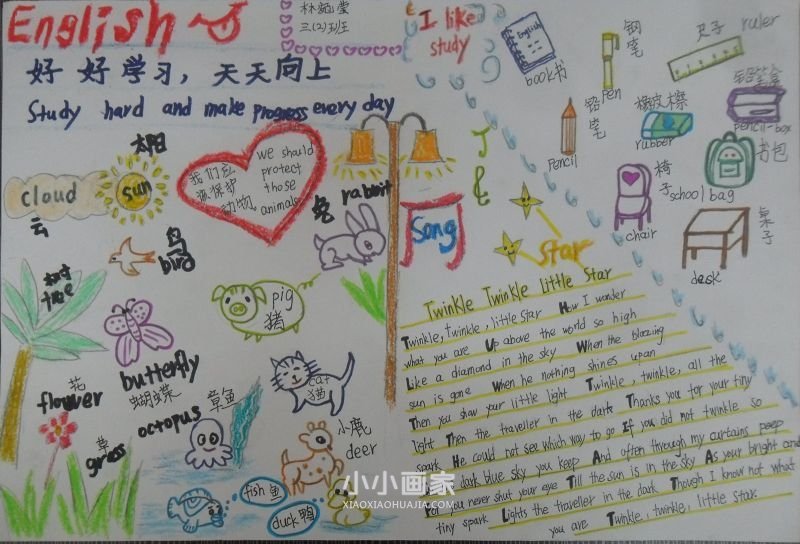 English
三(2)班
好好学习，天天向上
Study hard and make progress every day
I like
study
English
book书
钢笔
pen
尺子 ruler
铅笔
pencil
橡皮擦
rubber
铅笔盒
pencil-box
椅子
chair
书包
school bag
桌子
desk
太阳
sun
cloud
云
我们应
该保护
动物。
we should
protect
those
animals
兔 rabbit
鸟
bird
树
tree
pig
猪
butterfly
蝴蝶
花
flower
草
grass
章鱼
octopus
cat
猫
小鹿
deer
fish 鱼
duck 鸭
Song
star
Twinkle Twinkle Little Star
Twinkle, twinkle, little star How I wonder
what you are Up above the world so high
Like a diamond in the sky When the blazing
sun is gone When he nothing shines upan
Then you show your little light Twinkle, twinkle, all the
light Then the traveller in the dark Thanks you for your tiny
spark He could not see which way to go If you did not twinkle so
dark blue sky you keep And often through my curtains peep
For you never shut your eye Till the sun is in the sky As your bright and
tiny spark Lights the traveller in the dark Though I know not what
you are Twinkle, twinkle, little star
小小画家
XIAOXIAOHUAJIA.COM